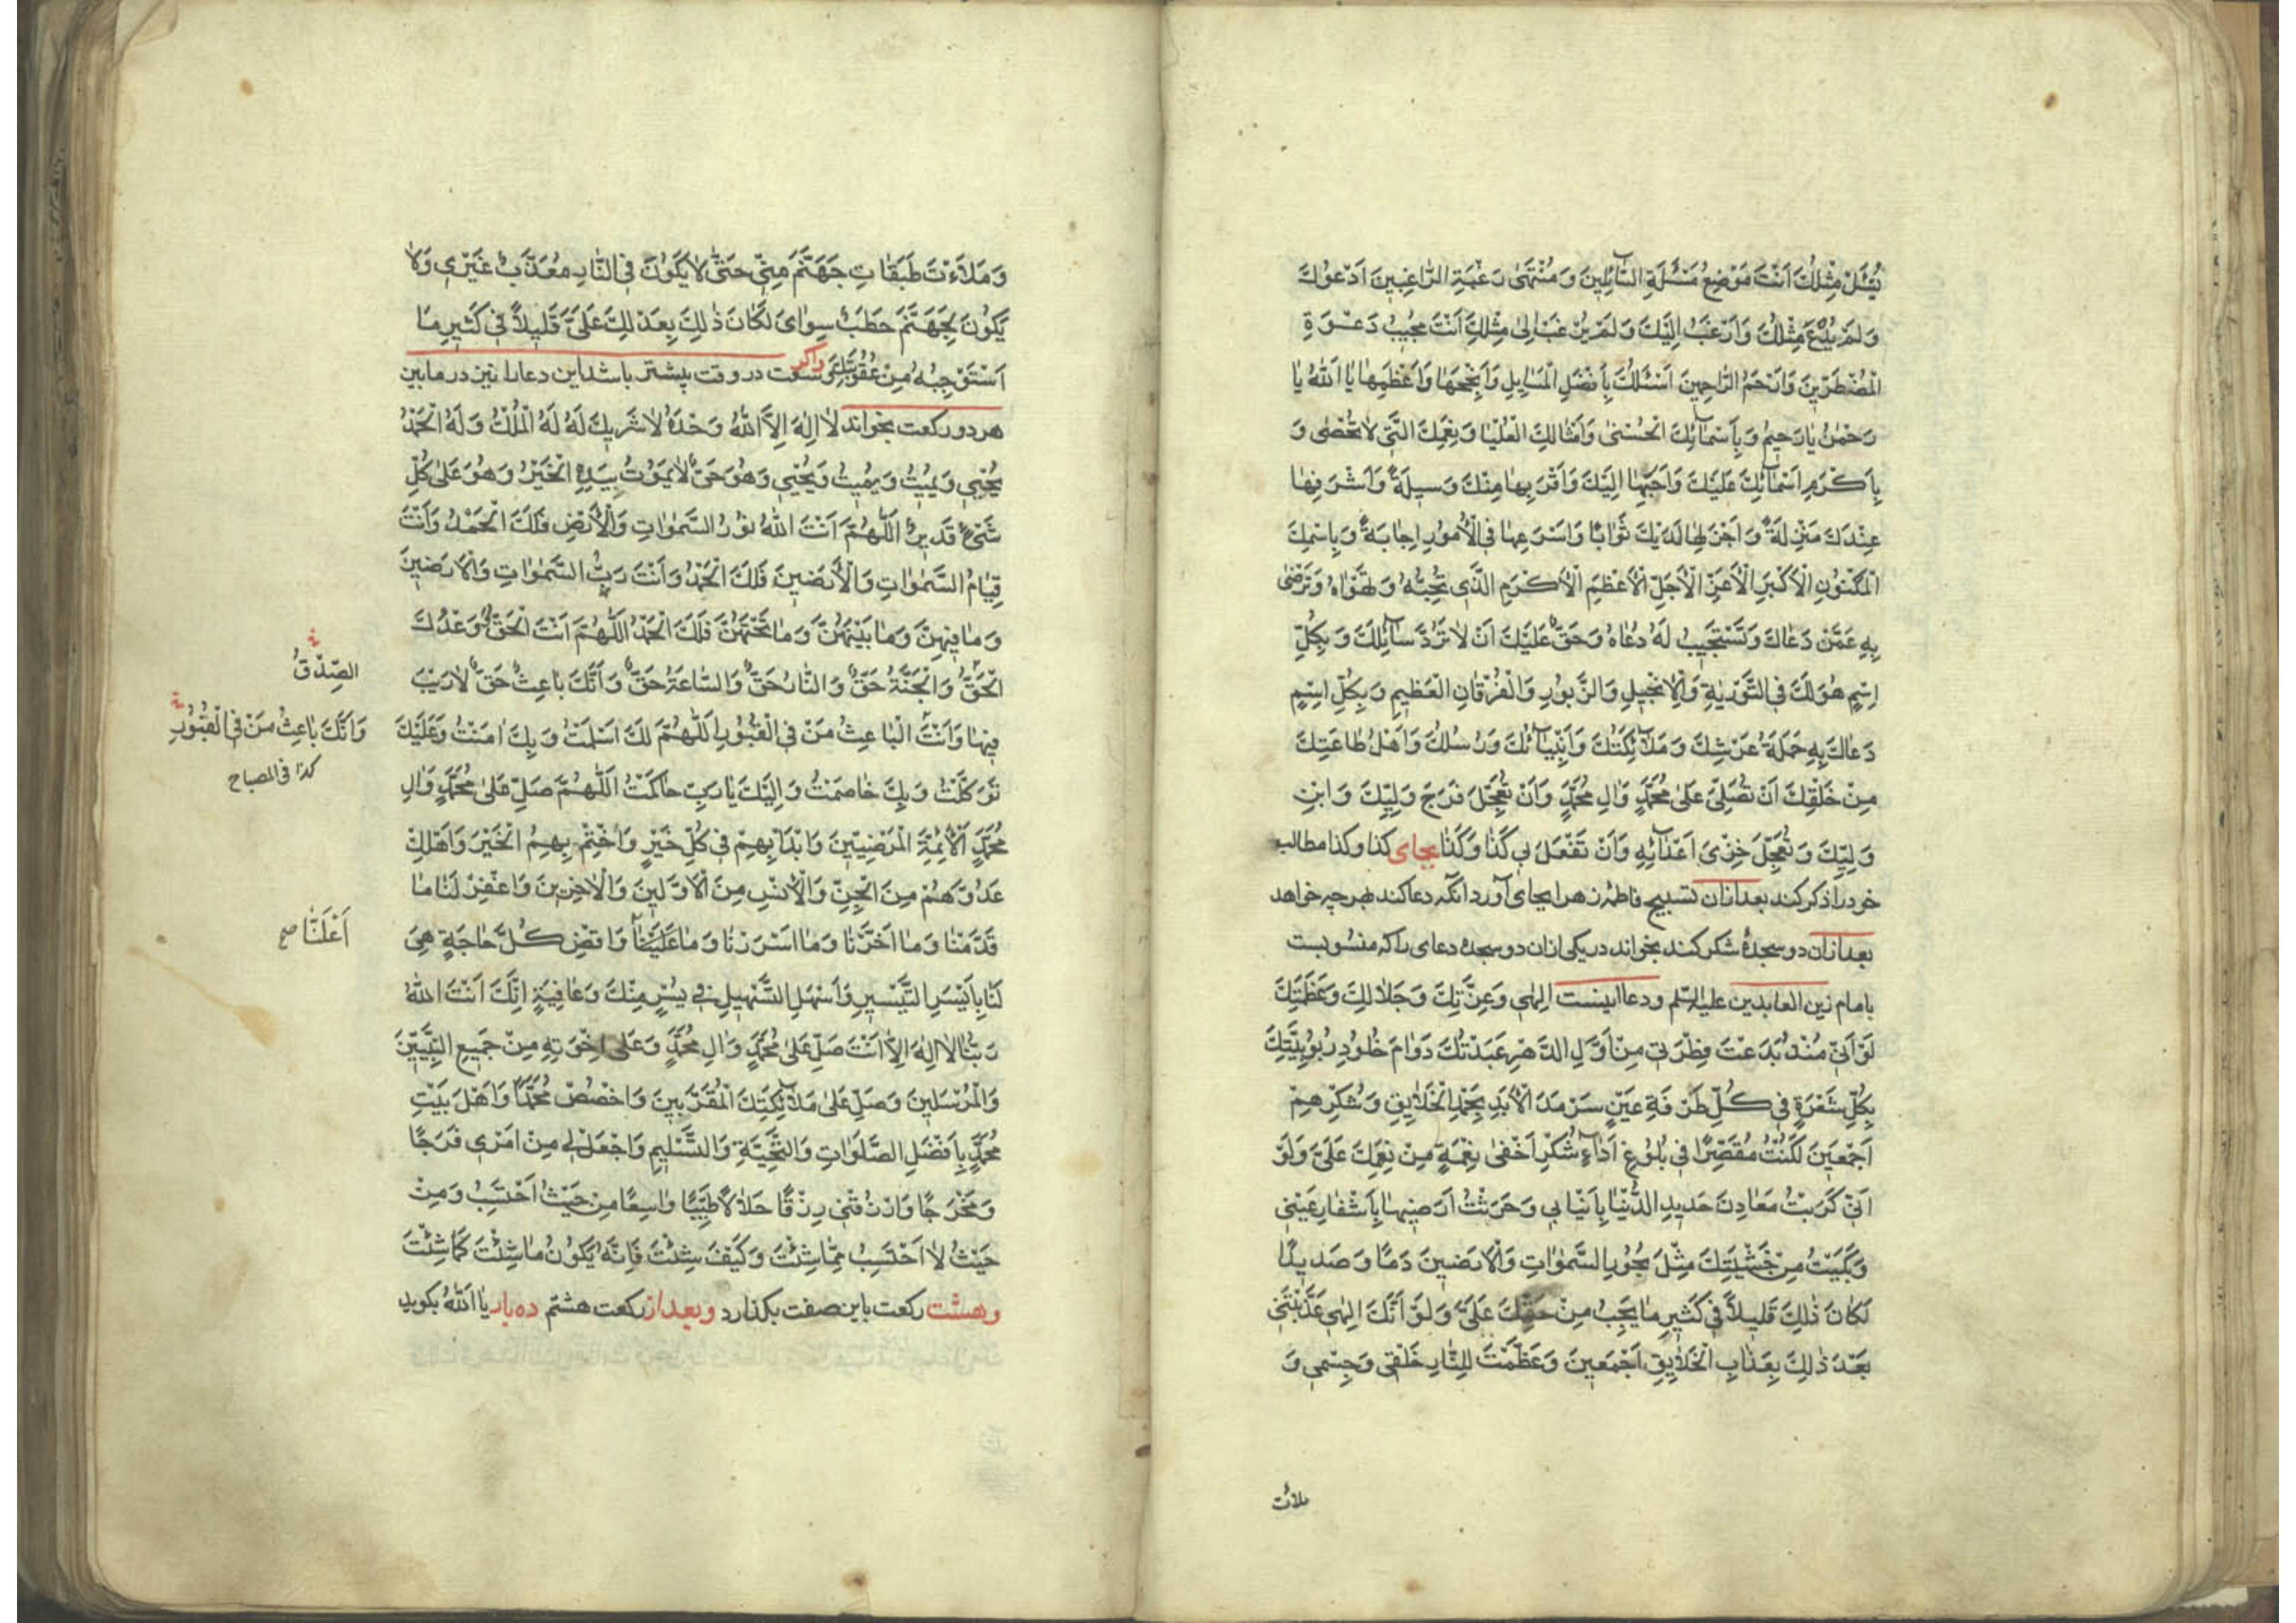 يُسْئَلْ مِثْلُكَ اَنْتَ مَوْضِعُ مَسْئَلَةِ السَّآئِلينَ وَ مُنْتَهىٰ رَغْبَةِ الرَّاغِبينَ اَدْعُوكَ
وَلَمْ يُدْعَ مِثْلُكَ وَاَرْغَبُ اِلَيْكَ وَلَمْ يُرْغَبْ اِلىٰ مِثْلِكَ اَنْتَ مُجيبُ دَعْوَةِ
الْمُضْطَرّينَ وَاَرْحَمُ الرَّاحِمينَ اَسْئَلُكَ بِاَفْضَلِ الْمَسَايِلِ وَاَنْجَحِهَا وَاَعْظَمِهَا يَا اَللهُ يَا
رَحْمٰنُ يَا رَحيمُ وَبِاَسْمَآئِكَ الْحُسْنىٰ وَاَمْثَالِكَ الْعُلْيَا وَنِعَمِكَ الَّتى لَا تُحْصىٰ وَ
بِاَكْرَمِ اَسْمَآئِكَ عَلَيْكَ وَاَحَبِّهَا اِلَيْكَ وَاَقْرَبِهَا مِنْكَ وَسيلَةً وَاَشْرَفِهَا
عِنْدَكَ مَنْزِلَةً وَاَجْزَلِهَا لَدَيْكَ ثَوَابًا وَاَسْرَعِهَا فِى الْاُمُورِ اِجَابَةً وَبِاسْمِكَ
الْمَكْنُونِ الْاَكْبَرِ الْاَعَزِّ الْاَجَلِّ الْاَعْظَمِ الْاَكْرَمِ الَّذى تُحِبُّهُ وَتَهْوَاهُ وَتَرْضىٰ
بِهِ عَمَّنْ دَعَاكَ وَتَسْتَجيبُ لَهُ دُعَاهُ وَحَقٌّ عَلَيْكَ اَنْ لَا تَرُدَّ سَآئِلَكَ وَبِكُلِّ
اِسْمٍ هُوَ لَكَ فِى التَّوْرٰيةِ وَالْاِنْجيلِ وَالزَّبُورِ وَالْفُرْقَانِ الْعَظيمِ وَبِكُلِّ اِسْمٍ
دَعَاكَ بِهِ حَمَلَةُ عَرْشِكَ وَمَلَآئِكَتُكَ وَاَنْبِيَآئُكَ وَرُسُلُكَ وَاَهْلُ طَاعَتِكَ
مِنْ خَلْقِكَ اَنْ تُصَلِّىَ عَلىٰ مُحَمَّدٍ وَاٰلِ مُحَمَّدٍ وَاَنْ تُعَجِّلَ فَرَجَ وَلِيِّكَ وَابْنِ
وَلِيِّكَ وَتُعَجِّلَ خِزْىَ اَعْدَآئِهِ وَاَنْ تَفْعَلَ بى كَذَا وَكَذَا بجاى كذا وكذا مطالب
خود را ذكر كند بعد ازان تسبيح فاطمه زهرا بجاى آورد انگه دعا كند بهر چه خواهد
بعد ازان دو سجدهٔ شكر كند بخواند در يكى ازان دو سجده دعاى را كه منسوبست
بامام زين العابدين عليه السّلم ودعا اينست اِلٰهى وَعِزَّتِكَ وَجَلَالِكَ وَعَظَمَتِكَ
لَوْ اَنّى مُنْذُ بَدَعْتَ فِطْرَتى مِنْ اَوَّلِ الدَّهْرِ عَبَدْتُكَ دَوَامَ خُلُودِ رُبُوبِيَّتِكَ
بِكُلِّ شَعْرَةٍ فى كُلِّ طَرْفَةِ عَيْنٍ سَرْمَدَ الْاَبَدِ بِحَمْدِ الْخَلَايِقِ وَشُكْرِهِمْ
اَجْمَعينَ لَكُنْتُ مُقَصِّرًا فى بُلُوغِ اَدَآءِ شُكْرِ اَخْفىٰ نِعْمَةٍ مِنْ نِعَمِكَ عَلَىَّ وَلَوْ
اَنّى كَرَبْتُ مَعَادِنَ حَديدِ الدُّنْيَا بِاَنْيَابى وَحَرَثْتُ اَرَضيهَا بِاَشْفَارِ عَيْنى
وَبَكَيْتُ مِنْ خَشْيَتِكَ مِثْلَ بُحُورِ السَّمٰوَاتِ وَالْاَرَضينَ دَمًا وَصَديدًا
لَكَانَ ذٰلِكَ قَليلًا فى كَثيرِ مَا يَجِبُ مِنْ حَقِّكَ عَلَىَّ وَلَوْ اَنَّكَ اِلٰهى عَذَّبْتَنى
بَعْدَ ذٰلِكَ بِعَذَابِ الْخَلَايِقِ اَجْمَعينَ وَعَظَّمْتَ لِلنَّارِ خَلْقى وَجِسْمى وَ
ملأت
وَمَلَأْتَ طَبَقَاتِ جَهَنَّمَ مِنّى حَتّىٰ لَا يَكُونَ فِى النَّارِ مُعَذَّبٌ غَيْرى وَلَا
يَكُونَ لِجَهَنَّمَ حَطَبٌ سِوَاىَ لَكَانَ ذٰلِكَ بِعَدْلِكَ عَلَىَّ قَليلًا فى كَثيرِ مَا
اَسْتَوْجِبُهُ مِنْ عُقُوبَتِكَ واگر وسعت در وقت بيشتر باشد اين دعا را نيز در مابين
هر دو ركعت بخواند لَا اِلٰهَ اِلَّا اللهُ وَحْدَهُ لَا شَريكَ لَهُ لَهُ الْمُلْكُ وَلَهُ الْحَمْدُ
يُحْيى وَيُميتُ وَيُميتُ وَيُحْيى وَهُوَ حَىٌّ لَا يَمُوتُ بِيَدِهِ الْخَيْرُ وَهُوَ عَلىٰ كُلِّ
شَىْءٍ قَديرٌ اَللّٰهُمَّ اَنْتَ اللهُ نُورُ السَّمٰوَاتِ وَالْاَرْضِ فَلَكَ الْحَمْدُ وَاَنْتَ
قِيَامُ السَّمٰوَاتِ وَالْاَرَضينَ فَلَكَ الْحَمْدُ وَاَنْتَ رَبُّ السَّمٰوَاتِ وَالْاَرَضينَ
وَمَا فيهِنَّ وَمَا بَيْنَهُنَّ وَمَا تَحْتَهُنَّ فَلَكَ الْحَمْدُ اَللّٰهُمَّ اَنْتَ الْحَقُّ وَوَعْدُكَ
الصِّدْقُ
الْحَقُّ وَالْجَنَّةُ حَقٌّ وَالنَّارُ حَقٌّ وَالسَّاعَةُ حَقٌّ وَاَنَّكَ بَاعِثٌ حَقٌّ لَا رَيْبَ
فيهَا وَاَنْتَ الْبَاعِثُ مَنْ فِى الْقُبُورِ اَللّٰهُمَّ لَكَ اَسْلَمْتُ وَبِكَ اٰمَنْتُ وَعَلَيْكَ
وَاَنَّكَ بَاعِثُ مَنْ فِى الْقُبُورِ
كذا فى المصباح
تَوَكَّلْتُ وَبِكَ خَاصَمْتُ وَاِلَيْكَ يَا رَبِّ حَاكَمْتُ اَللّٰهُمَّ صَلِّ عَلىٰ مُحَمَّدٍ وَاٰلِ
مُحَمَّدٍ الْاَئِمَّةِ الْمَرْضِيّينَ وَابْدَأْ بِهِمْ فى كُلِّ خَيْرٍ وَاخْتِمْ بِهِمُ الْخَيْرَ وَاَهْلِكْ
عَدُوَّهُمْ مِنَ الْجِنِّ وَالْاِنْسِ مِنَ الْاَوَّلينَ وَالْاٰخِرينَ وَاغْفِرْ لَنَا مَا
قَدَّمْنَا وَمَا اَخَّرْنَا وَمَا اَسْرَرْنَا وَمَا وَاقْضِ كُلَّ حَاجَةٍ هِىَ
اَعْلَنَّا صح
لَنَا بِاَيْسَرِ التَّيْسيرِ وَاَسْهَلِ التَّسْهيلِ فى يُسْرٍ مِنْكَ وَعَافِيَةٍ اِنَّكَ اَنْتَ اللهُ
رَبُّنَا لَا اِلٰهَ اِلَّا اَنْتَ صَلِّ عَلىٰ مُحَمَّدٍ وَاٰلِ مُحَمَّدٍ وَعَلىٰ اِخْوَتِهِ مِنْ جَميعِ النَّبِيّينَ
وَالْمُرْسَلينَ وَصَلِّ عَلىٰ مَلَآئِكَتِكَ الْمُقَرَّبينَ وَاخْصُصْ مُحَمَّدًا وَاَهْلَ بَيْتِ
مُحَمَّدٍ بِاَفْضَلِ الصَّلَوَاتِ وَالتَّحِيَّةِ وَالتَّسْليمِ وَاجْعَلْ لى مِنْ اَمْرى فَرَجًا
وَمَخْرَجًا وَارْزُقْنى رِزْقًا حَلَالًا طَيِّبًا وَاسِعًا مِنْ حَيْثُ اَحْتَسِبُ وَمِنْ
حَيْثُ لَا اَحْتَسِبُ مِمَّا شِئْتَ وَكَيْفَ شِئْتَ فَاِنَّهُ يَكُونُ مَا شِئْتَ كَمَا شِئْتَ
وهشت ركعت باين صفت بگذارد وبعد از ركعت هشتم ده بار يَا اَللهُ بگويد